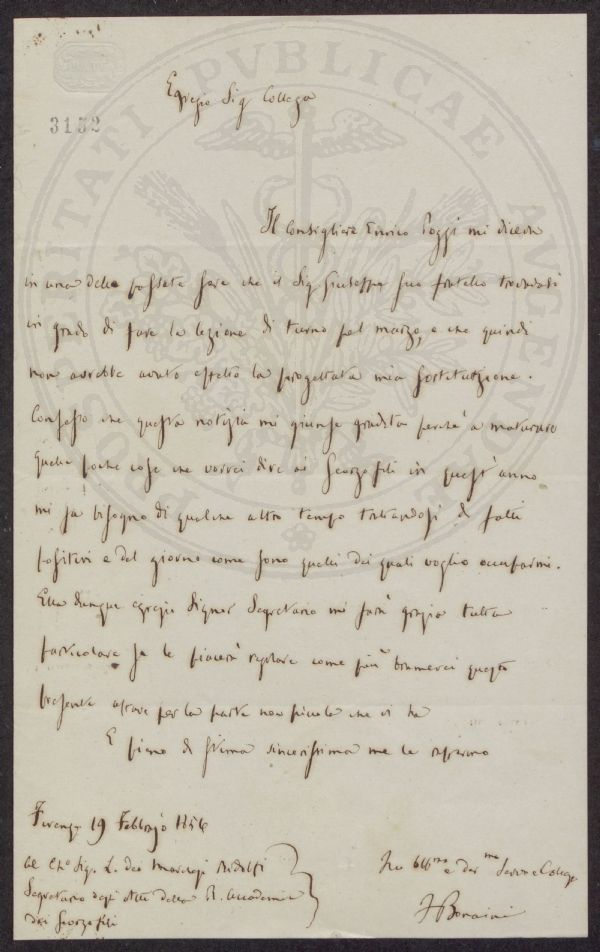 3132
PROSPERITATI PVBLICAE AVGENDAE
Egregio Sig Collega
Il Consigliere Enrico Poggi mi diceva
in una delle passate sere che il Sig Giuseppe suo fratello trovavasi
in grado di fare la lezione di turno pel marzo, e che quindi
non avrebbe avuto effetto la progettata mia sostituzione.
Confesso che questa notizia mi giunse gradita perchè a maturare
quelle poche cose che vorrei dire ai Georgofili in quest'anno
mi fa bisogno di qualche altro tempo trattandosi di fatti
positivi e del giorno come sono quelli dei quali voglio occuparmi.
Ella dunque egregio Signor Segretario mi farà grazia tutta
particolare se le piacerà regolare come più
presente affare per la parte non piccola che vi ha
E pieno di stima sincerissima me le raffermo
Firenze 19 Febbrajo 1856
Al Ch.o Sig. L. dei Marchesi Ridolfi
Segretario degli Atti della R. Accademia
dei Georgofili
Suo e Collega
F Bonaini